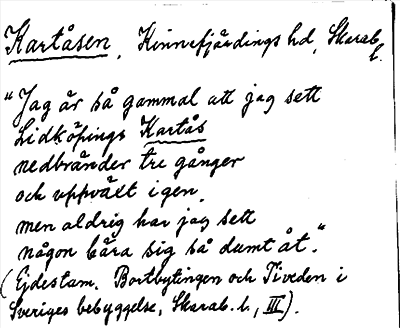 Kartåsen, Kinnefjärdings hd, Skarab.
l.
"Jag är så gammal att jag sett
Lidköpings Kartås
nedbränder tre gånger
och uppväxt igen,
men aldrig har jag sett
någon bära sig så dumt åt."
(Ejdestam. Bortbytingen och Tiveden i
Sveriges bebyggelse, Skarab. l., III).